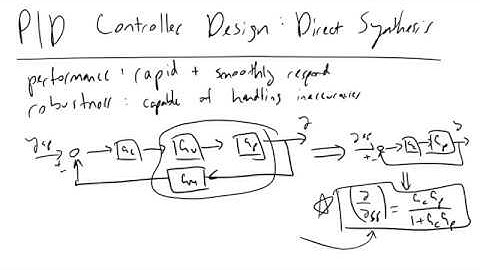 PID Controller Design: Direct Synthesis
performance: rapid + smoothly respond
robustness: capable of handling inaccuracies
Gc
Gv
Gp
Gm
Gc
Gp
= GcGp
1+GcGp